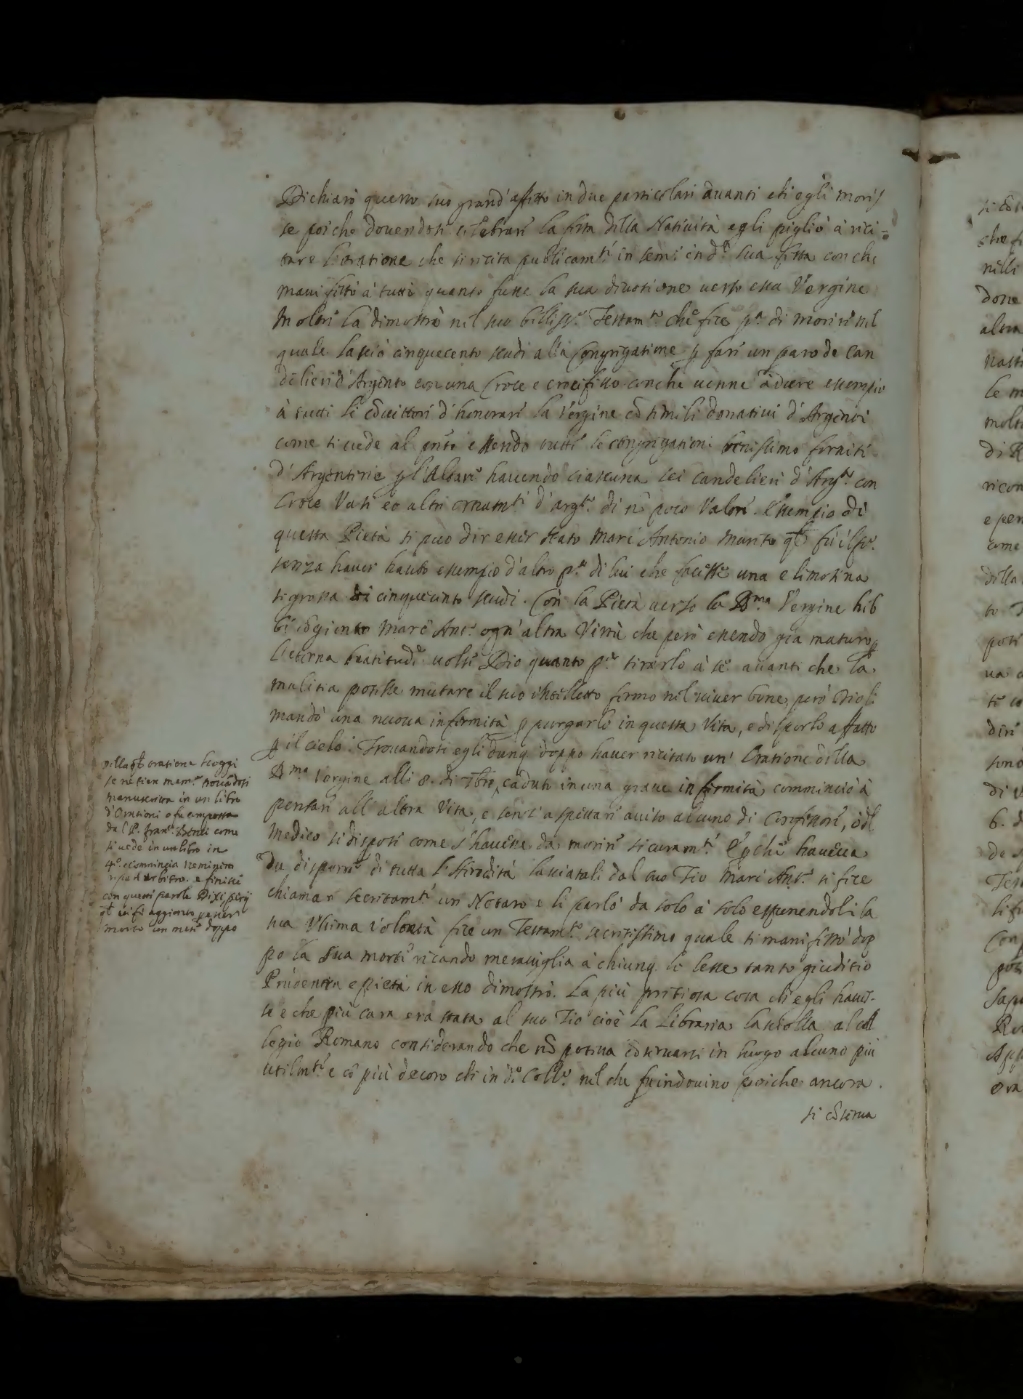 Dichiarò questo suo grand'affetto in due particolari avanti ch'egli moris
se poiche dovendosi celebrare la festa della Natività egli pigliò à reci=
tare l'oratione che si recita publicam.te in sem.o in d.a sua festa con che
manifestò à tutti quanto fusse la sua divotione verso essa Vergine
Molto la dimostrò nel suo bellissi.o Testam.to che fece p.a di morire nel
quale lasciò cinquecento scudi alla Congregatione p fare un paro de can
delieri d'Argento con una Croce e crocifisso con che venne à dare essempio
à tutti li  d'honorare la Vergine cō simili donativi d'Argento
come si vede al  essendo tutte le congregationi benissimo fornite
d'Argenterie p l'Altare havendo ciascuna sei candelieri d'Arg.to con
Croce Vasi et altri ornam.ti d'arg.to di nō poco valore. Essempio di
questa Pietà si può dir esser stato Marc'Antonio  fu il p.o
senza haver hauto essempio d'altro p.a di lui che facesse una elimosina
sì grossa di cinquecento scudi. Con la Pietà verso la B.ma Vergine heb
be  Marc'Ant.o ogn'altra Virtù che però essendo già maturo p
l'eterna beatitud.e volse Dio quanto p.a tirarlo à sè avanti che la
malitia potesse mutare il suo Intelletto fermo nel viver bene, però Dio li
mandò una nuova infermità p purgarlo in questa Vita, e disporlo affatto
p il cielo. Trovandosi egli dunq doppo haver recitato un'Oratione della
B.ma Vergine alli 8. di 7bre, caduto in una grave infermità comminciò à
pensare all'altra Vita, e senz'aspettare aviso alcuno di  del
Medico si dispose come s'havesse da morire sicuram.te. E pche haveva
da disporre di tutta l'Heredità lasciatali dal suo Tio Marc'Ant.o si fece
chiamar secretam.te un Notaro e li parlò da solo à solo esponendoli la
sua Ultima volontà fece un Testam.to secretissimo quale si manifestò dop
po la sua morte recando meraviglia à chiunq lo lesse tanto giuditio
Prudentia e pietà in esso dimostrò. La più pretiosa cosa ch'egli haves-
se e che più cara era stata al suo Tio cioè la Libraria lasciolla al Col
legio Romano considerando che nō poteva conservarsi in luogo alcuno più
utilm.te e cō più decoro che in d.o Coll.o nel che fu indovino poiche ancora
si cōserva
 oratione hoggi
se ne tien mem.a trovandosi
manuscritta in un libro
d'Orationi e fu composta
dal P. Fran.o Benci come
si vede in un libro in
4.o e comincia Neminem
 arbitror. e finisce
con queste parole Dixi,

morto un mese doppo